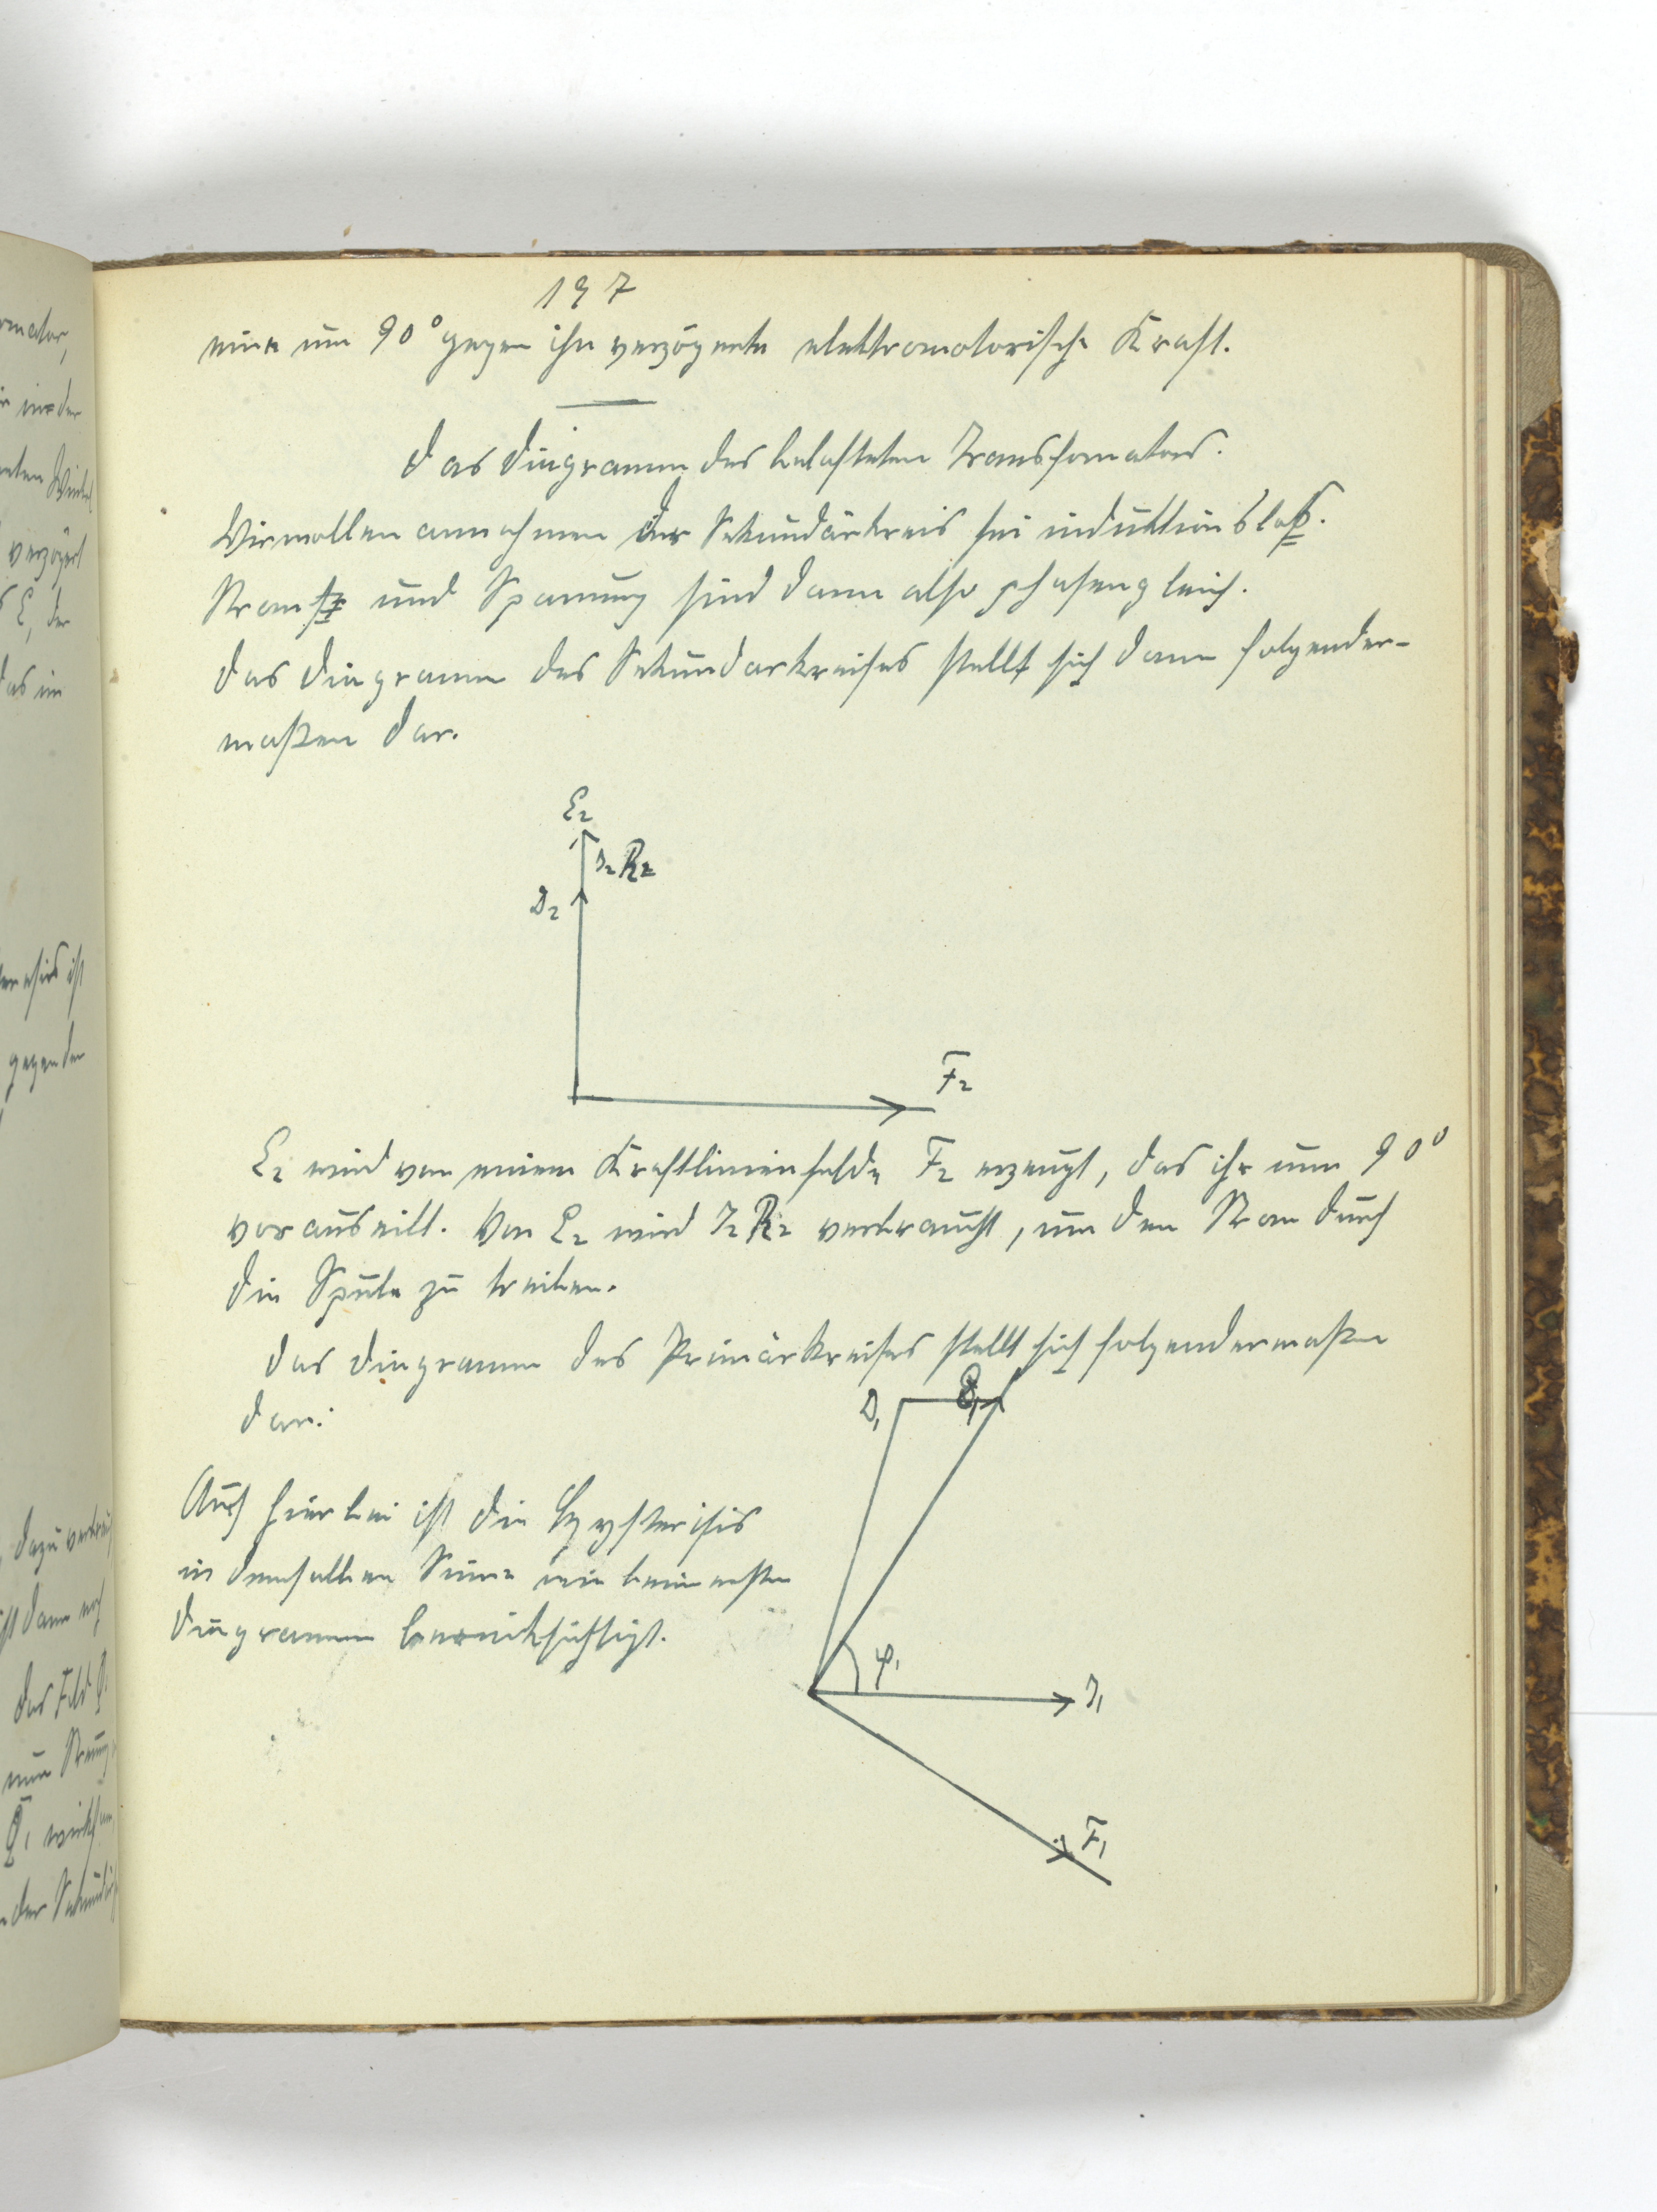 rmator,
in der
verzögert
E, der
das im
ist
gegen den
197
eine um 90° gegen ihn verzögerte elektromotorische Kraft.
Das Diagramm des belasteten Transfomators.
Wir wollen annehmen der Sekundärkreis sei induktionslos.
Strom und Spannung sind dann also phasengleich.
Das Diagramm des Sekundarkreises stellt sich dann folgender-
maßen dar.
E₂
J₂R₂
J₂
F₂
E₂ wird von einem Kraftlinienfelde F₂ erzeugt, das ihr um 90°
vorauseilt. Von E₂ wird J₂R₂ verbraucht, um den Strom durch
die Spule zu treiben.
Das Diagramm des Primärkreises stellt sich folgendermaßen
dar:
Auch hierbei ist die Hysterisis
in demselben Sinne wie beim ersten
Diagramm berücksichtigt.
φ₁
J₁
F₁
dazu
ist dann noch
das Feld
nun
der